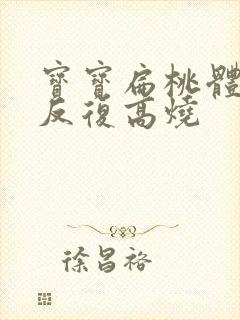 寶寶扁桃體
反復高燒
徐昌裕